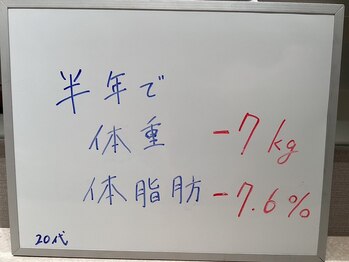 半年で
体重 -7kg
体脂肪 -7.6%
20代